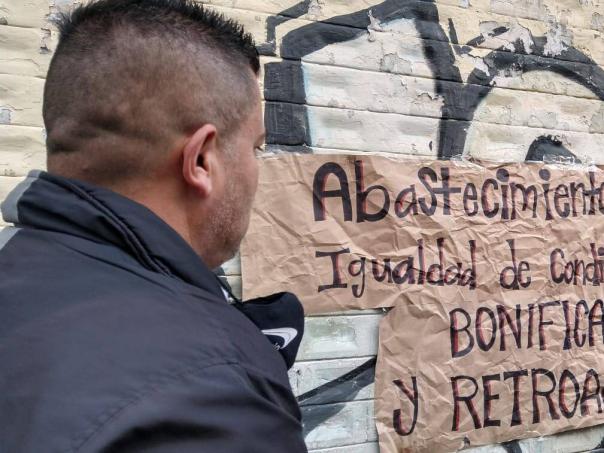 Abastecimient
Igualdad de Condi
BONIFICA
y RETROA